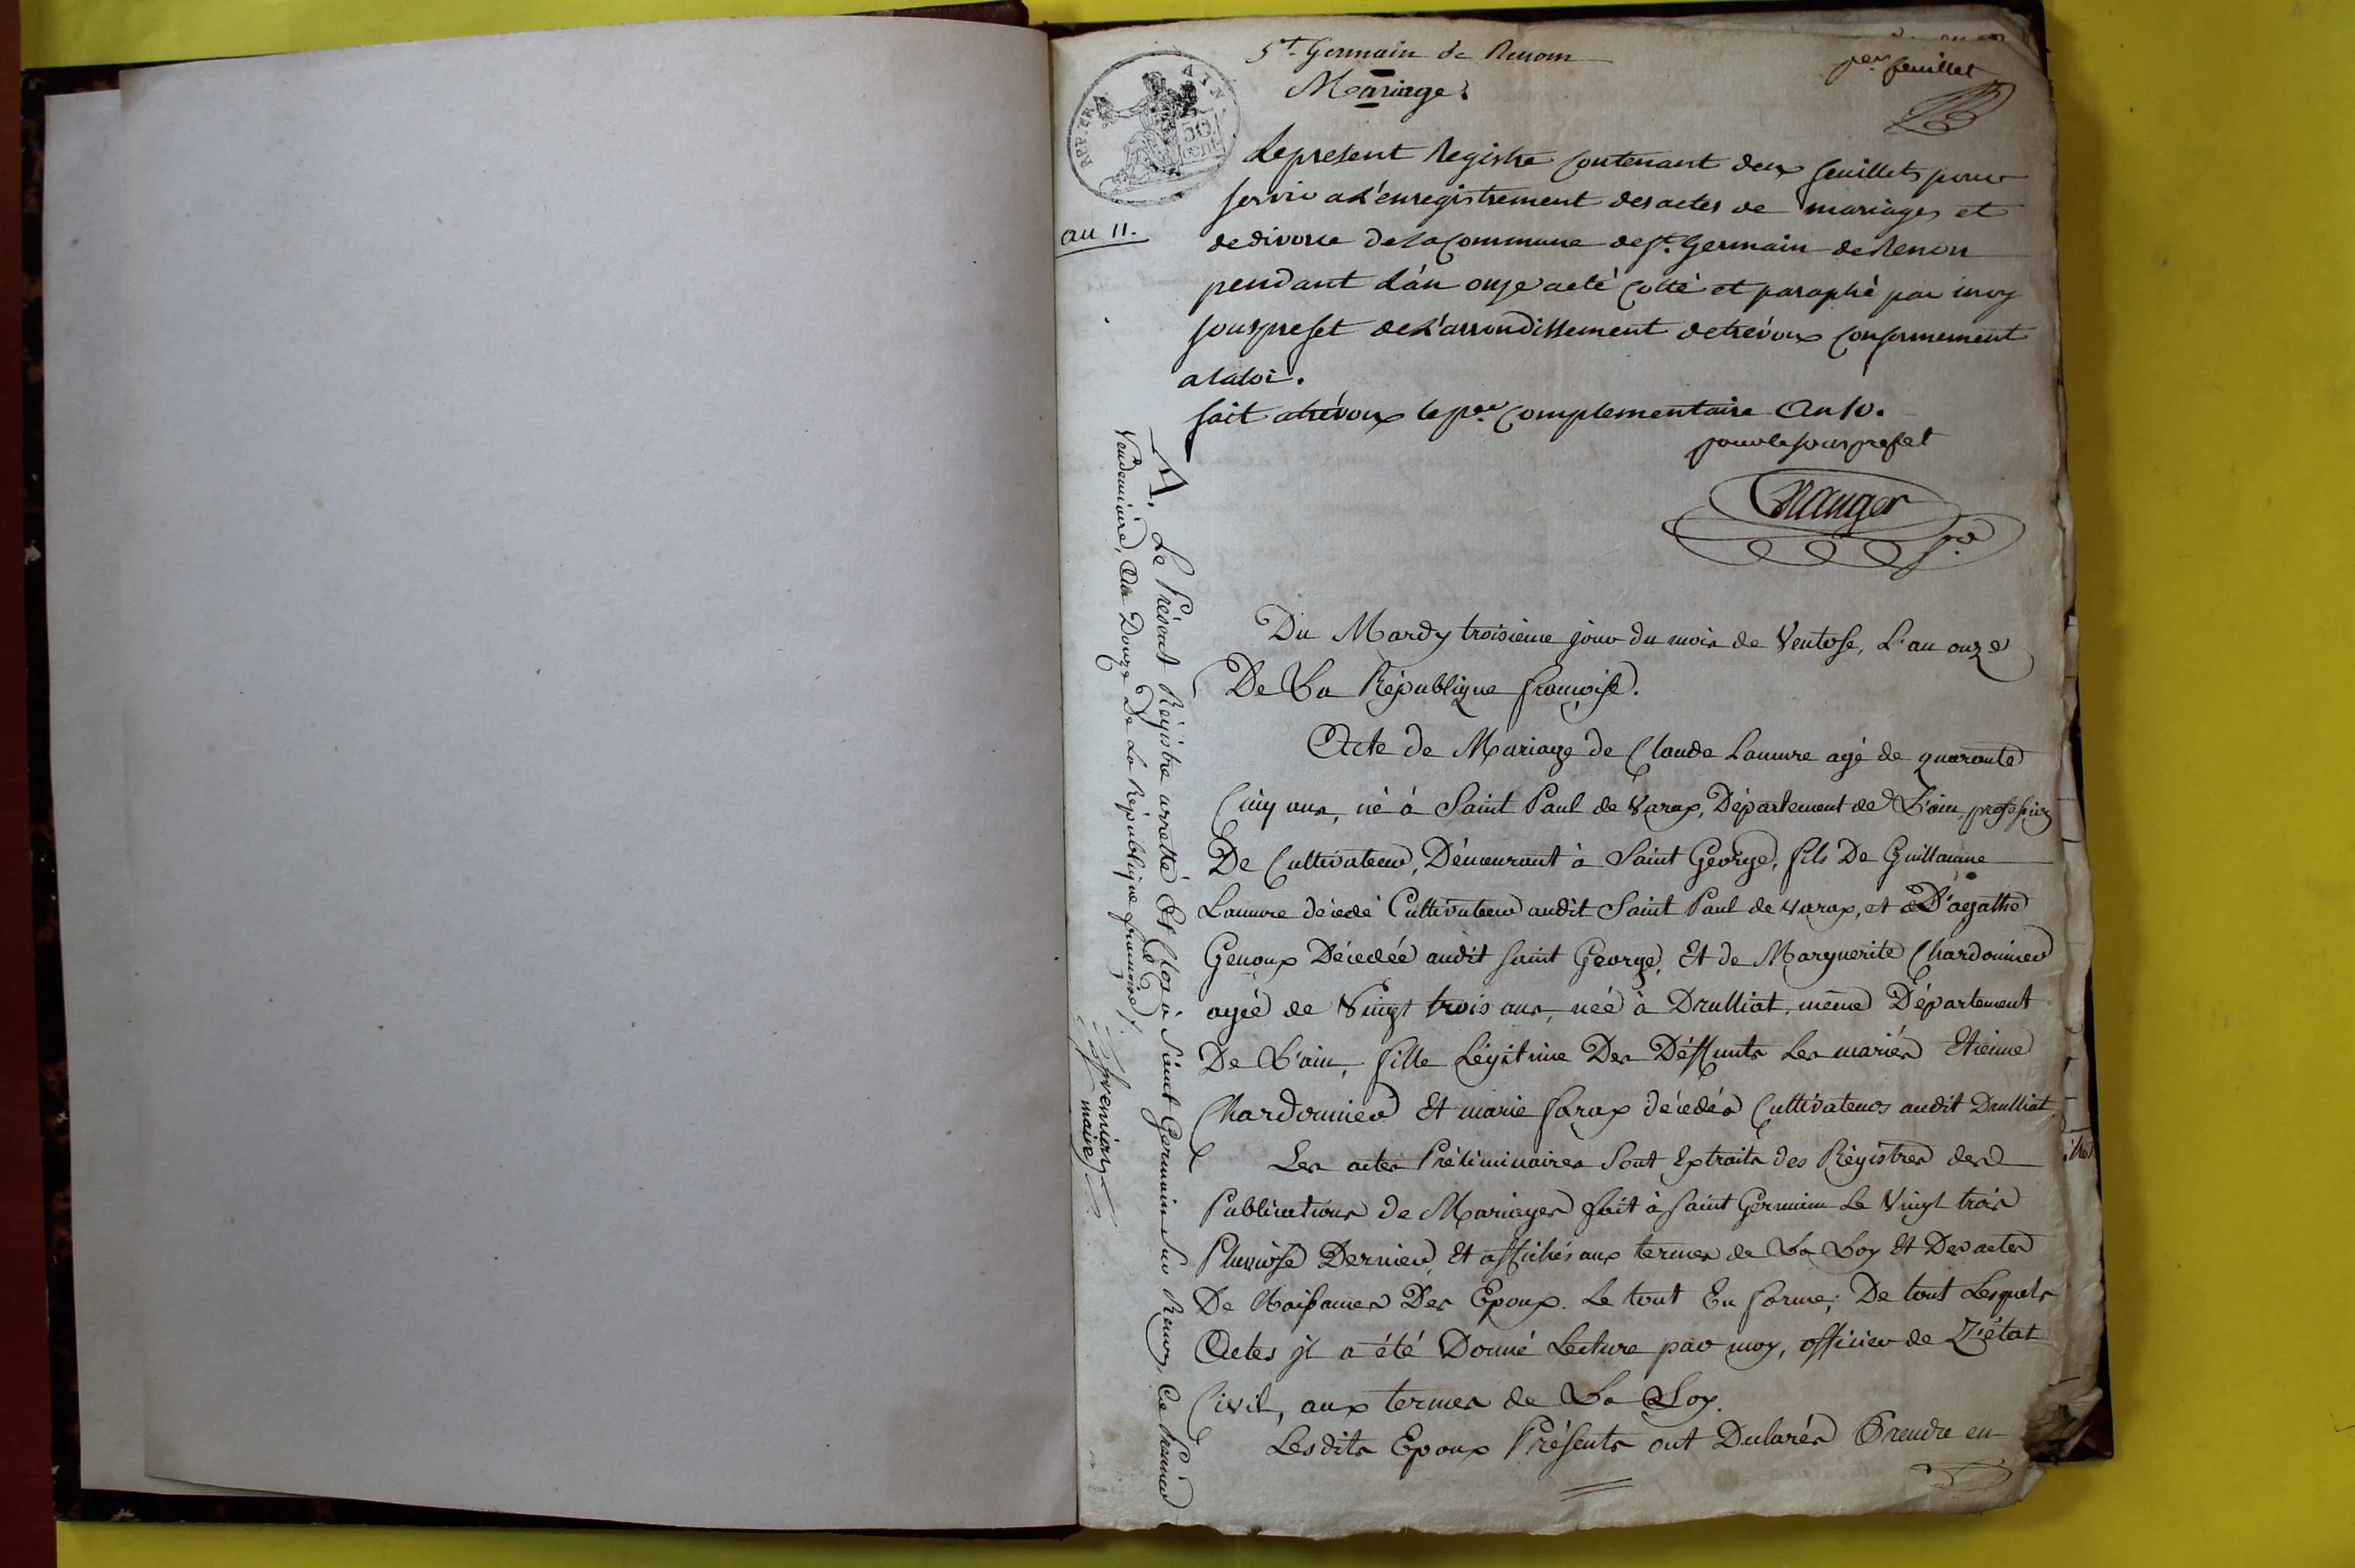 St. Germain de Renom
per feuillet
Mariage.
REP. FRA. AIN
50 cent
an 11.
Le present Registre contenant deux feuillets pour
servir a L'enregistrement des actes de mariages et
de divorce de la Commune de St. Germain de Renon
pendant L'an onze a eté Cotté et paraphé par moy
sous prefet de L'arrondissement de trévoux conformement
a la loi.
fait a trévoux le per Complementaire an 10.
pour le sous prefet
Du Mardy troisieme jour du mois de Ventose, L'an onze
De La République françoise.
Acte de Mariage de Claude Lamure agé de quarante
Cinq ans, né à Saint Paul de Varax, Département de L'ain, profession
De Cultivateur, Démeurant à Saint George, fils De Guillaume
Lamure décedé Cultivateur audit Saint Paul de Varax, et D'agathe
Genoux Décedée audit saint George, Et de Marguerite Chardonnier
agée de Vingt trois ans, née à Drulliat, même Département
De L'ain, fille Légitime Des Déffunts Les mariés Etienne
Chardonnier Et marie forax décedés Cultivateurs audit Drulliat
Les actes Préliminaires Sont Extraits des Régistres des
Publications de Mariages fait à saint Germain Le Vingt trois
Pluviôse Dernier, Et affichés aux termes de La Loy Et Des actes
De Naissances Des Epoux. Le tout En forme; De tout Lesquels
Actes il a été Donné Lecture par moy, officier de L'état
Civil, aux termes de La Loy.
Lesdits Epoux Présents ont Declarés Prendre en
Le Présent Régistre arretté Et Clos à Saint Germain sur Renon Le Premier
Vendemiaire, An Douze De La République française.
maire